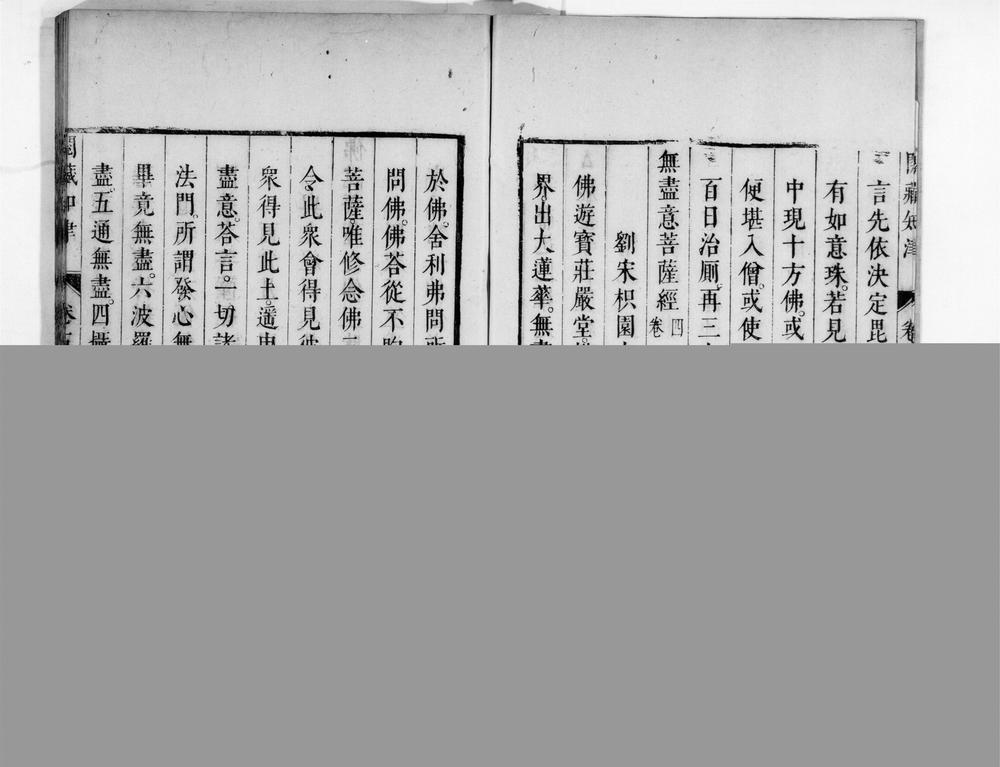 閱藏知津
卷
言先依決定毘
有如意珠。若見
中現十方佛。或
便堪入僧。或使
百日治厠。再三
無盡意菩薩經 四卷
劉宋枳園
佛遊寶莊嚴堂。
界。出大蓮華。無
於佛。舍利弗問所
問佛。佛荅從不
菩薩。唯修念佛
令此衆會得見彼
衆得見此土。遥
盡意。荅言。一切諸
法門。所謂發心無
畢竟無盡。六波羅
盡。五通無盡。四攝
閱藏知津
卷